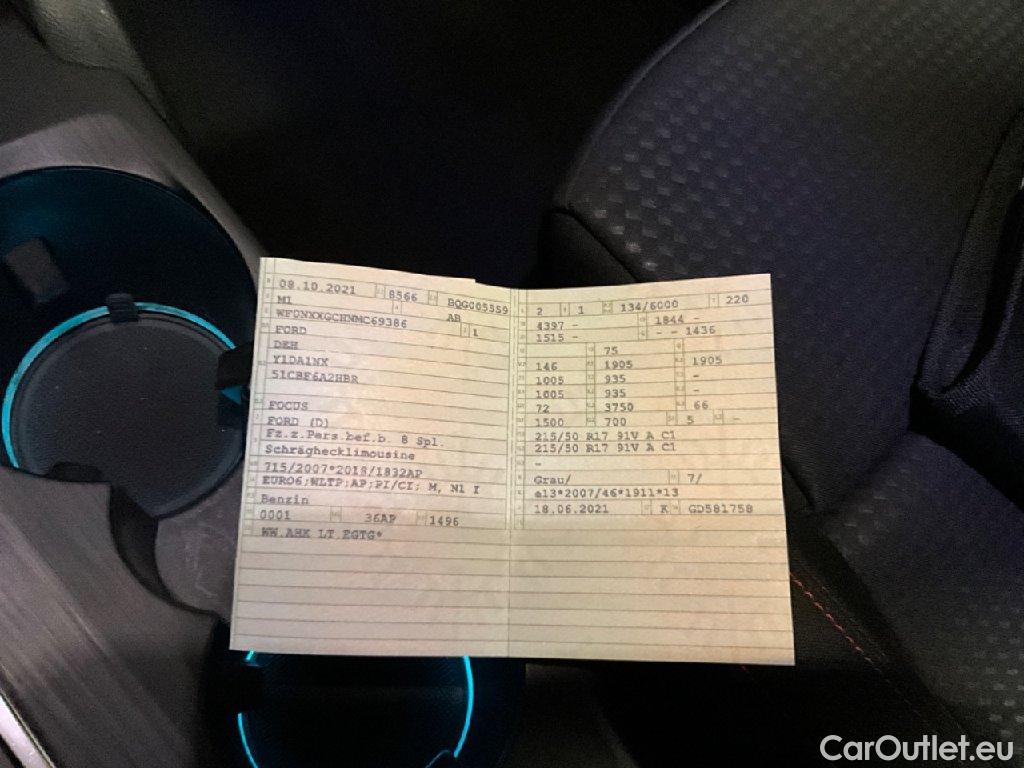 08.10.2021 8566 BQG005559
M1 AB
WF0NXXGCHNMC69386 1
FORD
DEH
Y1DA1NX
51CBF6A2HBR
FOCUS
FORD (D)
Fz.z.Pers.bef.b. 8 Spl.
Schräghecklimousine
715/2007*2018/1832AP
EURO6;WLTP;AP;PI/CI; M, N1 I
Benzin
0001 36AP 1496
WW.AHK LT.EGTG*
2 1 134/6000 220
4397 - 1844 -
1515 - - - 1436
75
146 1905 1905
1005 935 -
1005 935 -
72 3750 66
1500 700 5
215/50 R17 91V A C1
215/50 R17 91V A C1
-
Grau/ 7/
e13*2007/46*1911*13
18.06.2021 K GD581758
CarOutlet.eu